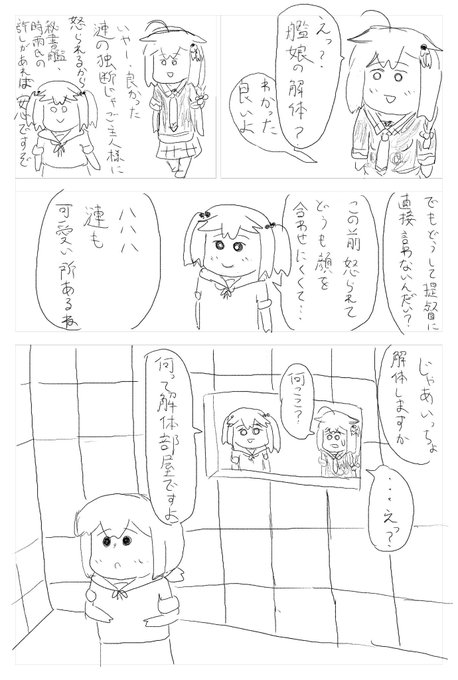 えっ？
艦娘の解体？
わかった
良いよ
いやー、良かった
漣の独断じゃご主人様に
怒られるから
秘書艦、
時雨氏の
許しがあれば
安心ですぞ
でもどうして提督に
直接言わないんだい？
この前怒られて
どうも顔を
合わせにくくて…
ハハハ
漣も
可愛い所あるね
じゃあいっちょ
解体しますか
…えっ？
何っここ？
何って解体部屋ですよ